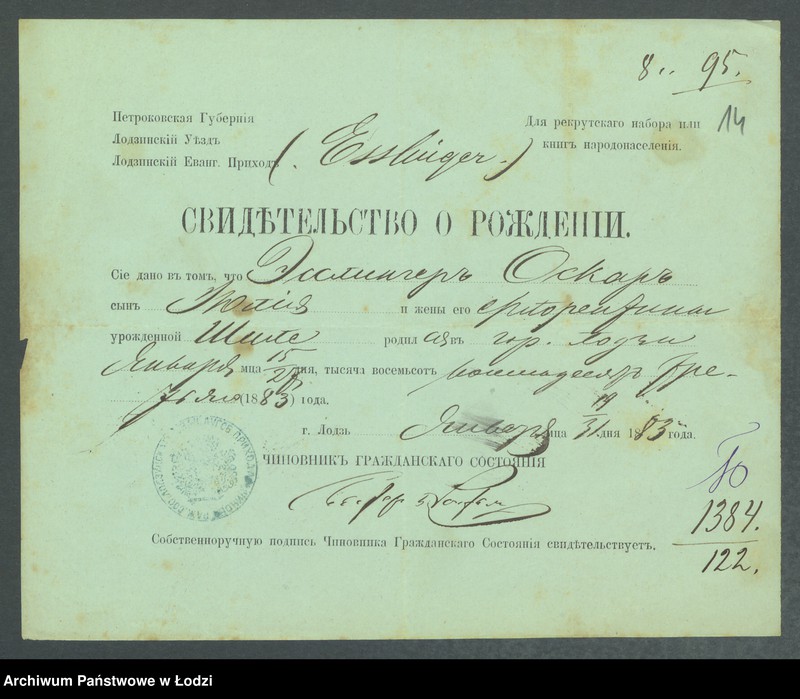 8.. 95.
14
Петроковская Губернія
Лодзинскій Уѣздъ
Лодзинскій Еванг. Приходъ
(Esslinger.)
Для рекрутскаго набора или
книгъ народонаселенія.
СВИДѢТЕЛЬСТВО О РОЖДЕНІИ.
Сіе дано въ томъ, что Эслингеръ Оскаръ
сынъ Юлія и жены его Флорентины
урожденной родился въ гор. Лодзи
Января мца 15/27 дня, тысяча восемьсотъ восьмдесятъ тре-
тьяго (1883) года.
г. Лодзь Января мца 19/31 дня 1883 года.
ЧИНОВНИКЪ ГРАЖДАНСКАГО СОСТОЯНІЯ
Собственноручную подпись Чиновника Гражданскаго Состоянія свидѣтельствуетъ.
1384.
122.
Archiwum Państwowe w Łodzi